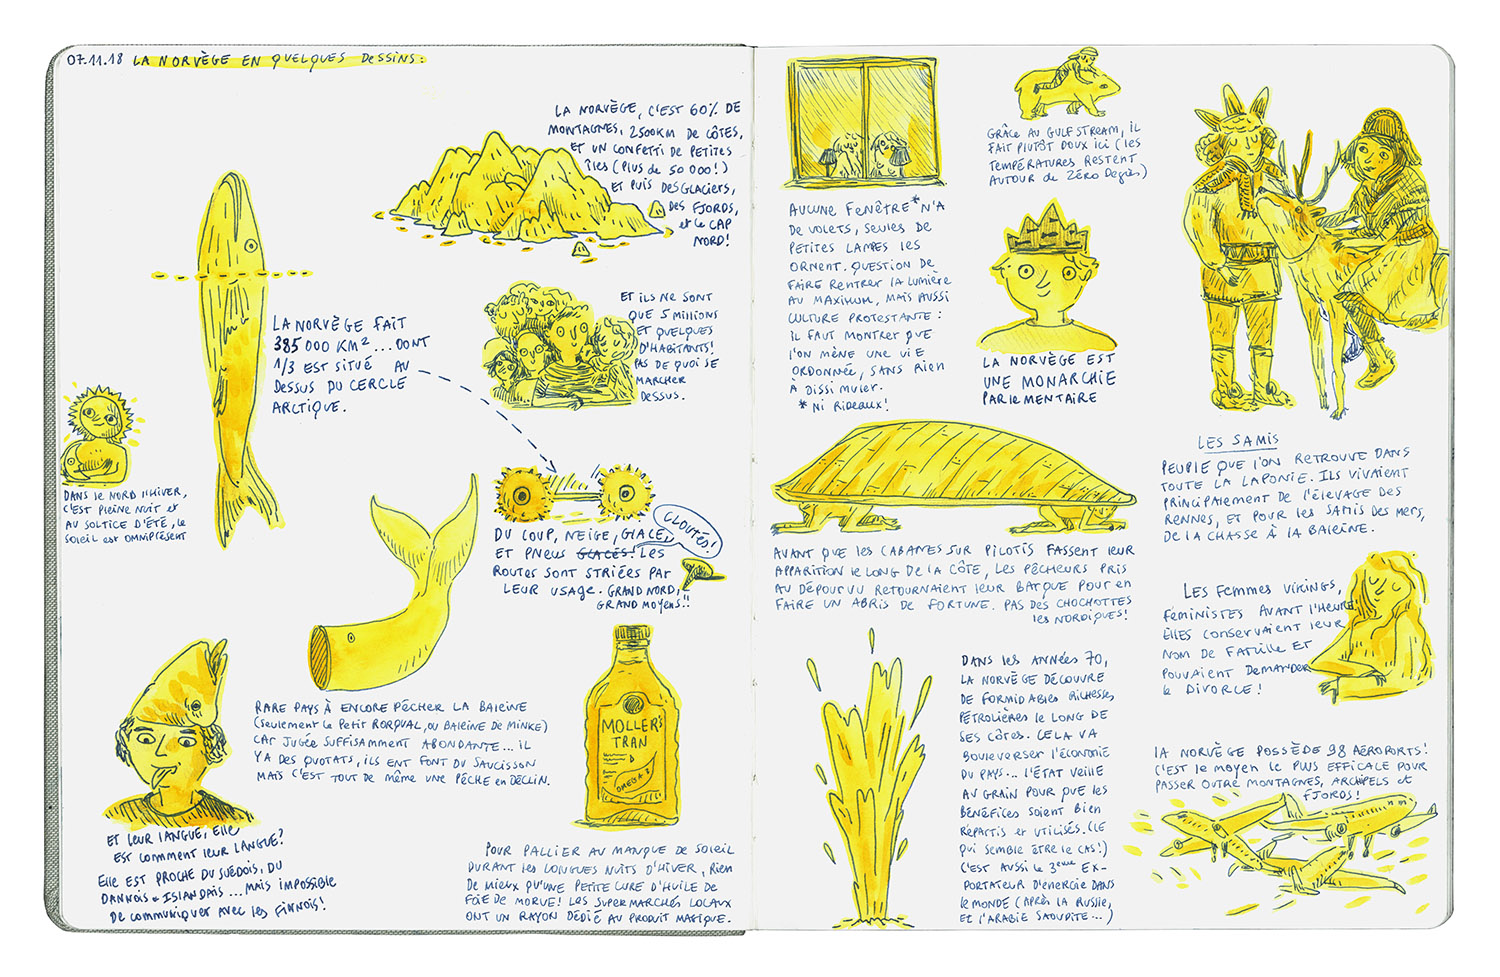 07.11.18 LA NORVÈGE EN QUELQUES DESSINS:
LA NORVÈGE, C'EST 60% DE
MONTAGNES, 2500KM DE CÔTES,
ET UN CONFETTI DE PETITES
ÎLES (PLUS DE 50 000!)
ET PUIS DES GLACIERS,
DES FJORDS,
ET LE CAP
NORD!
LA NORVÈGE FAIT
385 000 KM² ... DONT
1/3 EST SITUÉ AU
DESSUS DU CERCLE
ARCTIQUE.
ET ILS NE SONT
QUE 5 MILLIONS
ET QUELQUES
D'HABITANTS!
PAS DE QUOI SE
MARCHER
DESSUS.
DANS LE NORD L'HIVER,
C'EST PLEINE NUIT ET
AU SOLTICE D'ÉTÉ, LE
SOLEIL EST OMNIPRÉSENT
DU COUP, NEIGE, GLACE,
ET PNEUS GLACÉS! LES
CLOUTÉS!
ROUTES SONT STRIÉES PAR
LEUR USAGE. GRAND NORD,
GRAND MOYENS!!
RARE PAYS À ENCORE PÊCHER LA BALEINE
(SEULEMENT LE PETIT RORQUAL, OU BALEINE DE MINKE)
CAR JUGÉE SUFFISAMMENT ABONDANTE... IL
Y A DES QUOTATS, ILS ENT FONT DU SAUCISSON
MAIS C'EST TOUT DE MÊME UNE PÊCHE EN DÉCLIN.
MOLLER'S
TRAN
OMEGA 3
ET LEUR LANGUE, ELLE
EST COMMENT LEUR LANGUE?
ELLE EST PROCHE DU SUÉDOIS, DU
DANNOIS + ISLANDAIS ... MAIS IMPOSSIBLE
DE COMMUNIQUER AVEC LES FINNOIS!
POUR PALLIER AU MANQUE DE SOLEIL
DURANT LES LONGUES NUITS D'HIVER, RIEN
DE MIEUX QU'UNE PETITE CURE D'HUILE DE
FOIE DE MORUE! LES SUPERMARCHÉS LOCAUX
ONT UN RAYON DÉDIÉ AU PRODUIT MAGIQUE.
AUCUNE FENÊTRE* N'A
DE VOLETS, SEULES DE
PETITES LAMPES LES
ORNENT. QUESTION DE
FAIRE RENTRER LA LUMIÈRE
AU MAXIMUM, MAIS AUSSI
CULTURE PROTESTANTE:
IL FAUT MONTRER QUE
L'ON MÈNE UNE VIE
ORDONNÉE, SANS RIEN
À DISSIMULER.
* NI RIDEAUX!
GRÂCE AU GULF STREAM, IL
FAIT PLUTÔT DOUX ICI (LES
TEMPÉRATURES RESTENT
AUTOUR DE ZÉRO DEGRÉS)
LA NORVÈGE EST
UNE MONARCHIE
PARLEMENTAIRE
LES SAMIS
PEUPLE QUE L'ON RETROUVE DANS
TOUTE LA LAPONIE. ILS VIVAIENT
PRINCIPALEMENT DE L'ÉLEVAGE DES
RENNES, ET POUR LES SAMIS DES MERS,
DE LA CHASSE À LA BALEINE.
AVANT QUE LES CABANES SUR PILOTIS FASSENT LEUR
APPARITION LE LONG DE LA CÔTE, LES PÊCHEURS PRIS
AU DÉPOURVU RETOURNAIENT LEUR BARQUE POUR EN
FAIRE UN ABRIS DE FORTUNE. PAS DES CHOCHOTTES
LES NORDIQUES!
LES FEMMES VIKINGS,
FÉMINISTES AVANT L'HEURE!
ELLES CONSERVAIENT LEUR
NOM DE FAMILLE ET
POUVAIENT DEMANDER
LE DIVORCE!
DANS LES ANNÉES 70,
LA NORVÈGE DÉCOUVRE
DE FORMIDABLES RICHESSES
PÉTROLIÈRES LE LONG DE
SES CÔTES. CELA VA
BOULEVERSER L'ÉCONOMIE
DU PAYS... L'ÉTAT VEILLE
AU GRAIN POUR QUE LES
BÉNÉFICES SOIENT BIEN
RÉPARTIS ET UTILISÉS. (CE
QUI SEMBLE ÊTRE LE CAS!)
C'EST AUSSI LE 3ème EX-
PORTATEUR D'ÉNERGIE DANS
LE MONDE (APRÈS LA RUSSIE,
ET L'ARABIE SAOUDITE...)
LA NORVÈGE POSSÈDE 98 AÉROPORTS!
C'EST LE MOYEN LE PLUS EFFICALE POUR
PASSER OUTRE MONTAGNES, ARCHIPELS ET
FJORDS!